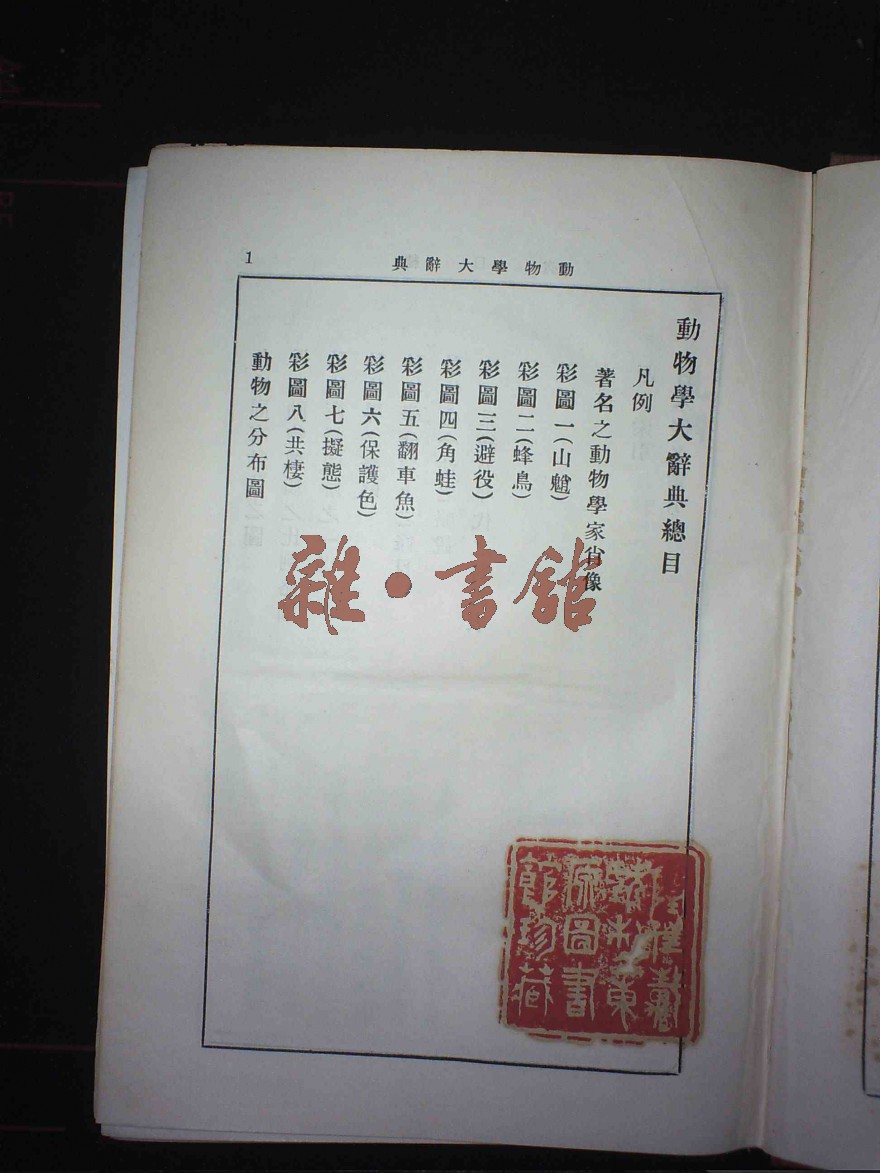 動物學大辭典
1
動物學大辭典總目
凡例
著名之動物學家肖像
彩圖一(山魈)
彩圖二(蜂鳥)
彩圖三(避役)
彩圖四(角蛙)
彩圖五(翻車魚)
彩圖六(保護色)
彩圖七(擬態)
彩圖八(共棲)
動物之分布圖
雜·書館
院圖書
館珍藏